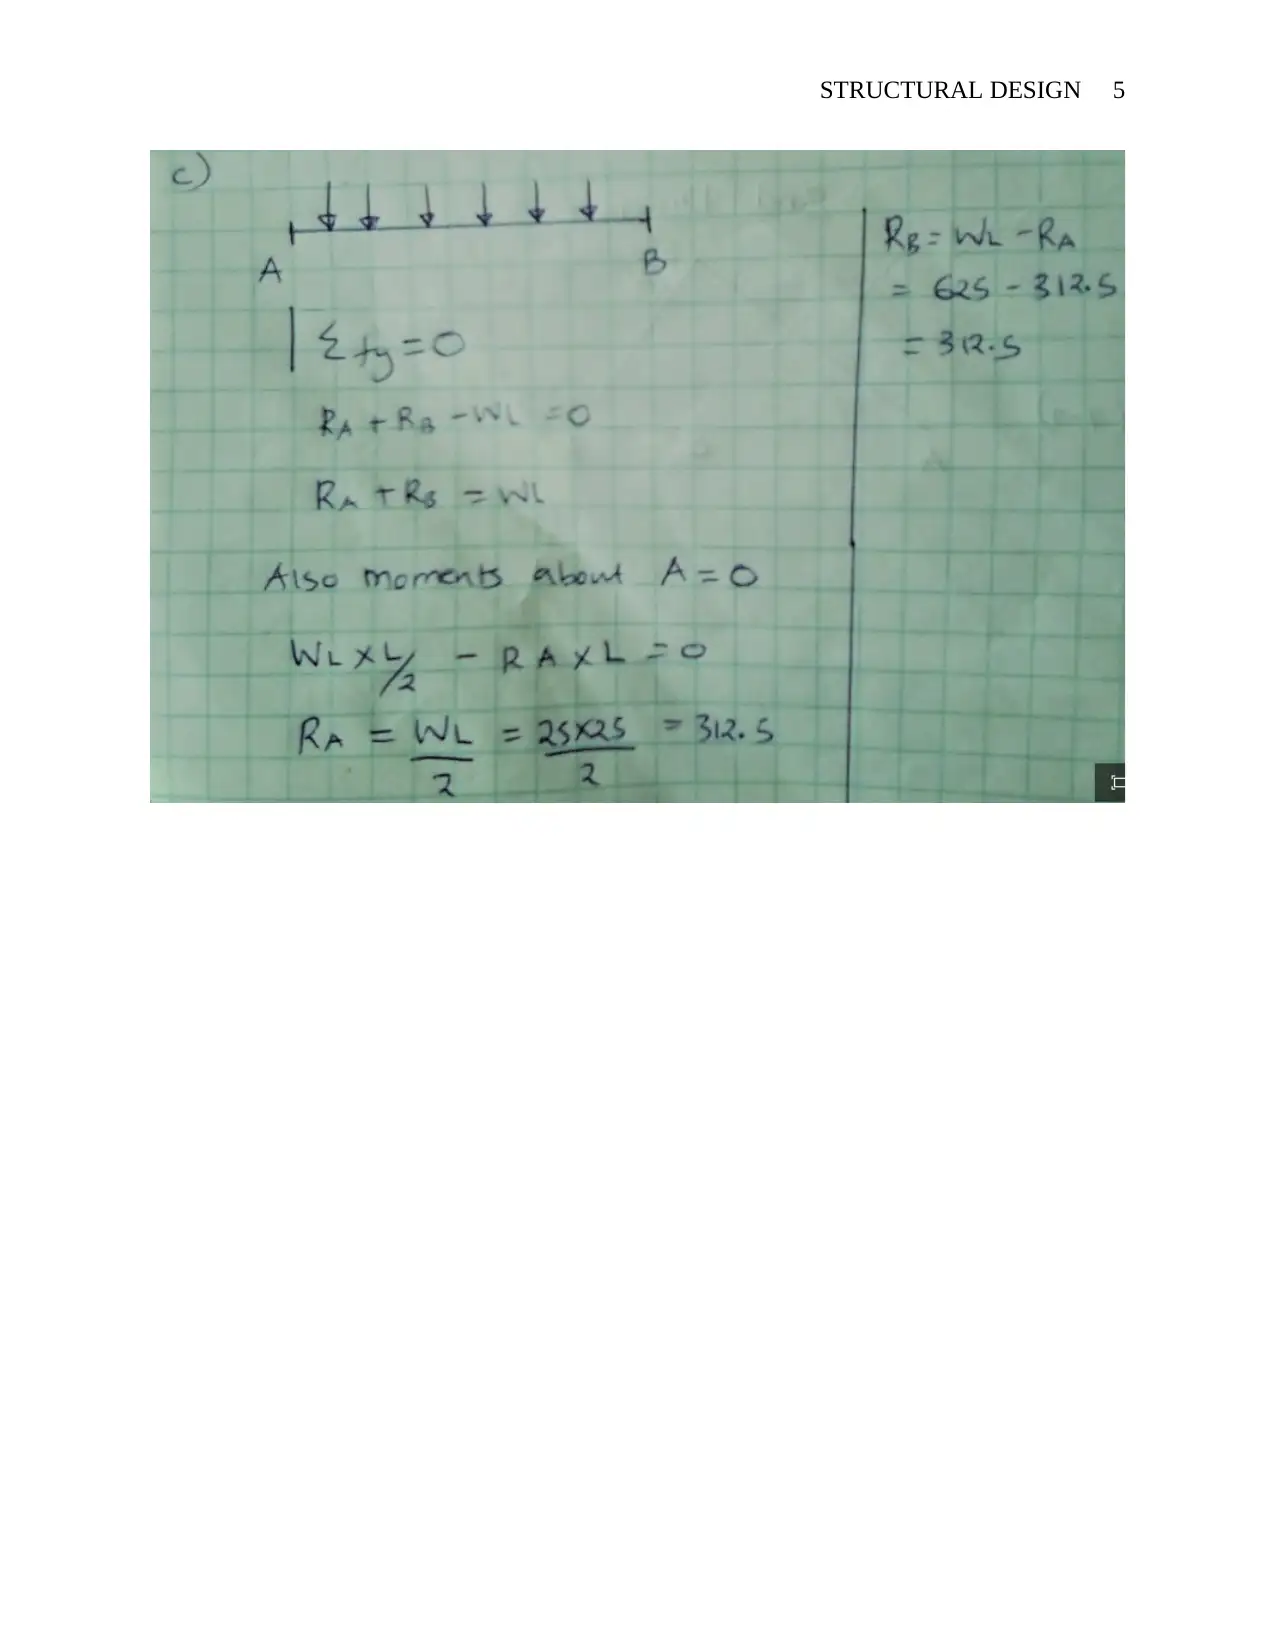 STRUCTURAL DESIGN 5
c)
A B
Σfy=0
RA + RB - WL = 0
RA + RB = WL
Also moments about A = 0
WL × L/2 - RA × L = 0
RA = WL/2 = 25×25/2 = 312.5
RB = WL - RA
= 625 - 312.5
= 312.5